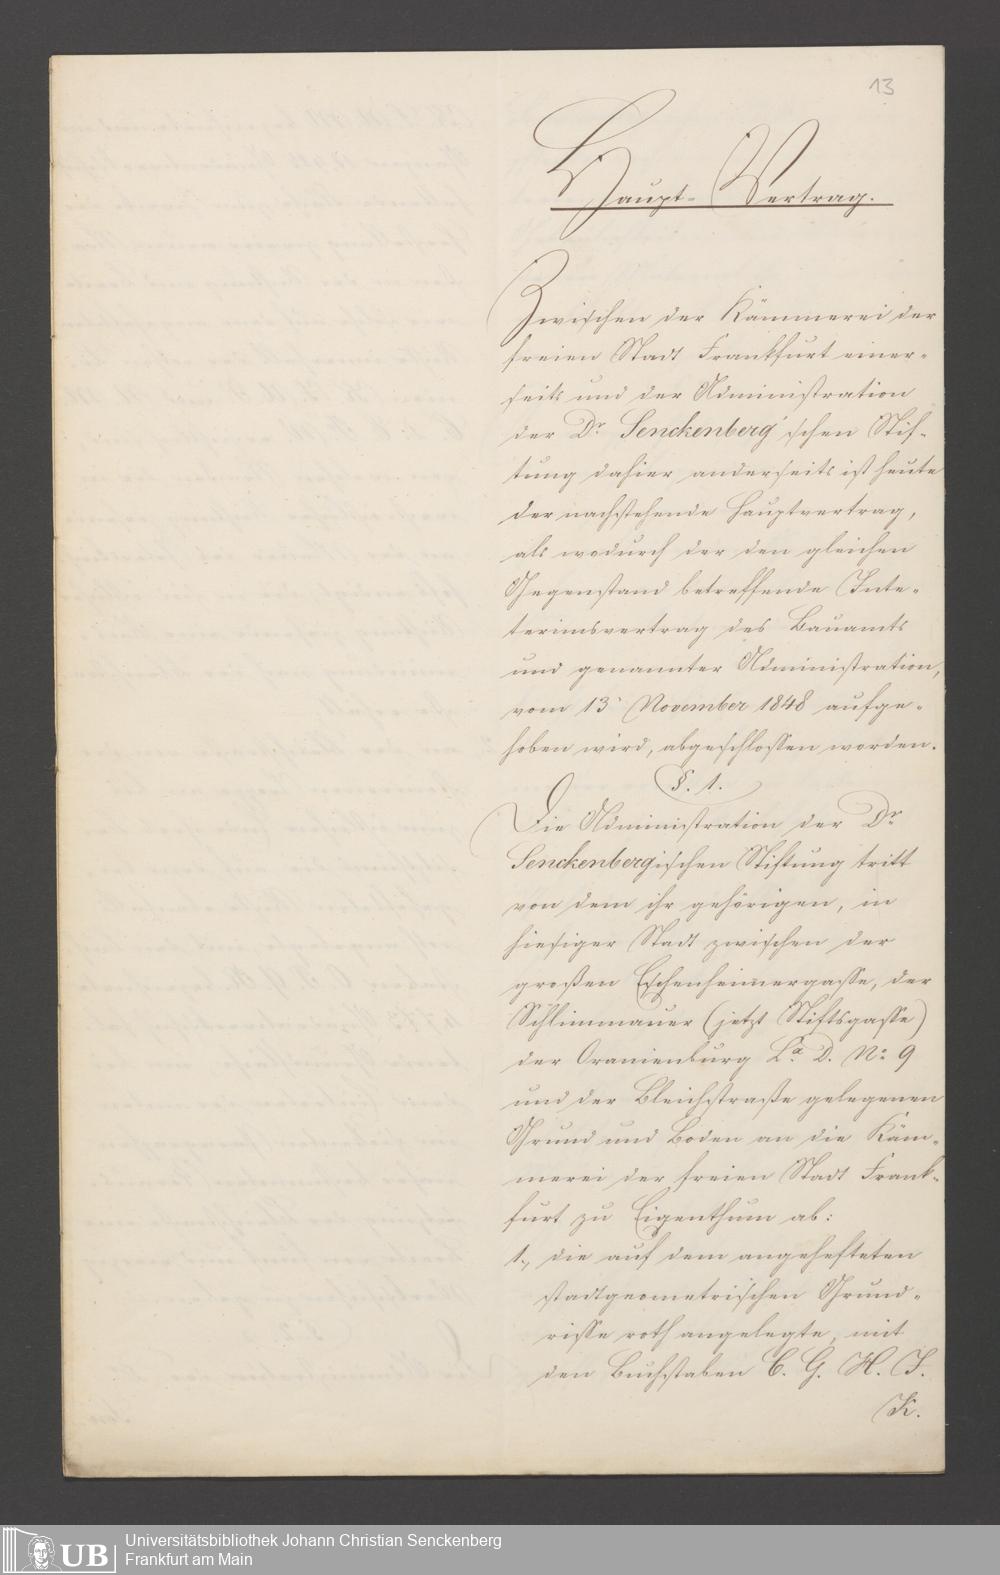 13
Haupt-Vertrag.
Zwischen der Kämmerei der
freien Stadt Frankfurt einer-
seits und der Administration
der Dr. Senckenberg'schen Stif-
tung dahier anderseits ist heute
der nachstehende Hauptvertrag,
als wodurch der den gleichen
Gegenstand betreffende Inte-
terimsvertrag des Bauamts
und genannter Administration,
vom 13 November 1848 aufge-
hoben wird, abgeschlossen worden.
§. 1.
Die Administration der Dr
Senckenbergischen Stiftung tritt
von dem ihr gehörigen, in
hiesiger Stadt zwischen der
großen Eschenheimergasse, der
Schlimmauer (jetzt Stiftsgasse)
der Oranienburg La. D. No 9
und der Bleichstraße gelegenen
Grund und Boden an die Käm-
merei der freien Stadt Frank-
furt zu Eigenthum ab:
1., die auf dem angehefteten
stadtgeometrischen Grund-
risse roth angelegte, mit
den Buchstaben C. G. H. J.
K.
UB
Universitätsbibliothek Johann Christian Senckenberg
Frankfurt am Main